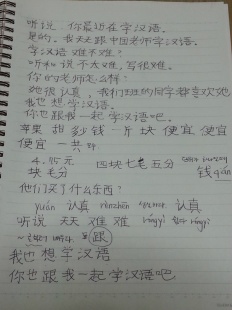 听说 你最近在学汉语。
是的。我天天跟中国老师学汉语。
学汉语 难不难?
听和说不太难，写很难。
你的老师怎么样?
她很认真，我们班的同学都喜欢她
我也想学汉语。
你也跟我一起学汉语吧。
苹果 甜 多少钱 一斤 块 便宜 便宜
便宜 一共
4.75元 四块七毛五分
块 毛分 钱qián
他们买了什么东西?
yuán 认真 rènzhēn 认真
听说 天天 难 难
跟
我也想学汉语
你也跟我一起学汉语吧